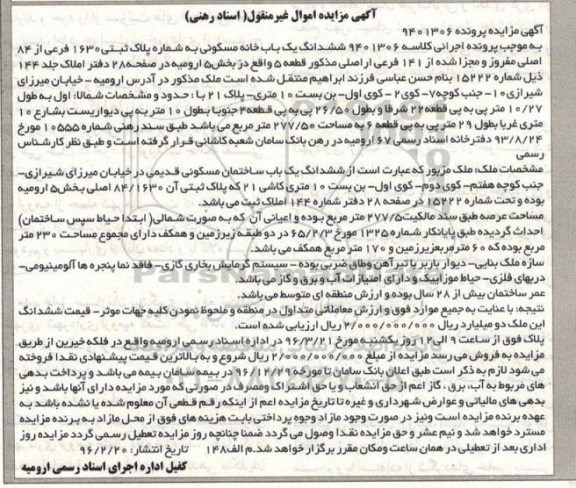 آگهی مزایده اموال غیرمنقول( اسناد رهنی)
آگهی مزایده پرونده ۹۴۰۱۳۰۶
به موجب پرونده اجرائی کلاسه ۹۴۰۱۳۰۶ ششدانگ یک باب خانه مسکونی به شماره پلاک ثبتی۱۶۳۰ فرعی از ۸۴
اصلی مفروز و مجزا شده از ۱۴۱ فرعی از اصلی مذکور قطعه ۵ واقع در بخش۵ ارومیه در صفحه۲۸ دفتر املاک جلد ۱۴۴
ذیل شماره ۱۵۲۲۲ بنام حسن عباسی فرزند ابراهیم منتقل شده است ملک مذکور در آدرس ارومیه - خیابان میرزای
شیرازی۱۰- جنب کوچه۷- کوی۲ - کوی اول- بن بست ۱۰ متری- پلاک ۲۱ با : حدود و مشخصات شمالا: اول به طول
۱۰/۲۷ متر پی به پی قطعه ۱۲ شرقا و بطول ۲۶/۵۰ پی به پی قطعه۴ جنوبا بطول ۱۰ متر به پی دیواریست بشارع ۱۰
متری غربا بطول ۲۹ متر پی به پی قطعه ۶ به مساحت ۲۷۷/۵۰ متر مربع می باشد طبق سند رهنی شماره ۱۰۵۵۵ مورخ
۹۳/۸/۲۴ دفترخانه اسناد رسمی ۶۷ ارومیه در رهن بانک سامان شعبه کاشانی قرار گرفته است و طبق نظر کارشناس
رسمی
مشخصات ملک: ملک مزبور که عبارت است از ششدانگ یک باب ساختمان مسکونی قدیمی در خیابان میرزای شیرازی-
جنب کوچه هفتم- کوی دوم- کوی اول- بن بست ۱۰ متری کاشی ۲۱ که پلاک ثبتی آن ۸۴/۱۶۳۰ اصلی بخش۵ ارومیه
بوده و تحت شماره ۱۵۲۲۲ در صفحه ۲۸ دفتر شماره ۱۴۴ املاک ثبت می باشد.
مساحت عرصه طبق سند مالکیت۲۷۷/۵ متر مربع بوده و اعیانی آن که به صورت شمالی( ابتدا حیاط سپس ساختمان)
احداث گردیده طبق پایانکار شماره ۱۳۲۵ مورخ ۶۵/۲/۳ در دو طبقه زیرزمین و همکف دارای مجموع مساحت ۲۳۰ متر
مربع بوده که ۶۰ مترمربع زیرزمین و ۱۷۰ متر مربع همکف می باشد.
سازه ملک بنایی- دیوار باربر با تیرآهن وطاق ضربی بوده - سیستم گرمایش بخاری گازی- فاقد نما پنجره ها آلومینیومی-
دربهای فلزی- حیاط موزاییک و دارای امتیازات آب و برق و گاز می باشد.
عمر ساختمان بیش از ۲۸ سال بوده و ارزش منطقه ای متوسط می باشد.
نتیجه: با عنایت به جمیع موارد فوق و ارزش معاملاتی متداول در منطقه و ملحوظ نمودن کلیه جهات موثر- قیمت ششدانگ
این ملک دو میلیارد ریال ۲/۰۰۰/۰۰۰/۰۰۰ ریال ارزیابی شده است.
پلاک فوق از ساعت ۹ الی۱۲ روز یکشنبه مورخ ۹۶/۳/۲۱ در اداره اسناد رسمی ارومیه واقع در فلکه خیرین از طریق
مزایده به فروش می رسد مزایده از مبلغ ۲/۰۰۰/۰۰۰/۰۰۰ ریال شروع و به بالاترین قیمت پیشنهادی نقدا فروخته
می شود لازم به ذکر است طبق اعلان بانک سامان تا مورخه ۹۶/۱۲/۲۹ در بیمه سامان بیمه می باشد و پرداخت بدهی
های مربوط به آب، برق ، گاز اعم از حق انشعاب و یا حق اشتراک ومصرف در صورتی که مورد مزایده دارای آنها باشد و نیز
بدهی های مالیاتی و عوارض شهرداری و غیره تا تاریخ مزایده اعم از اینکه رقم قطعی آن معلوم شده یا نشده باشد به
عهده برنده مزایده است ونیز در صورت وجود مازاد وجوه پرداختی بابت هزینه های فوق از محل مازاد به برنده مزایده
مسترد خواهد شد و نیم عشر و حق مزایده نقدا وصول می گردد ضمنا چنانچه روز مزایده تعطیل رسمی گردد مزایده روز
اداری بعد از تعطیلی در همان ساعت ومکان مقرر برگزار خواهد شد.م الف۱۴۸ تاریخ انتشار: ۹۶/۲/۲۰
کفیل اداره اجرای اسناد رسمی ارومیه